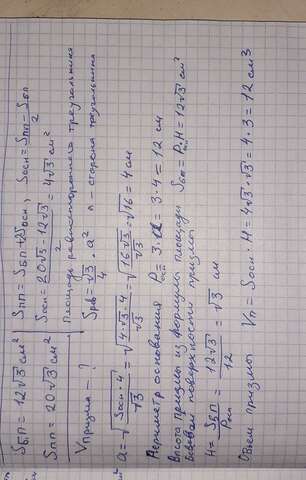 Sбп = 12√3 см²
Sпп = 20√3 см²
Vпризмы - ?
Sпп = Sбп + 2Sосн; Sосн = Sпп - Sбп / 2
Sосн = 20√3 - 12√3 / 2 = 4√3 см²
Площадь равностороннего треугольника
Sрав = √3/4 · a² a - сторона треугольника
a = √(Sосн · 4 / √3) = √(4·√3·4 / √3) = √(16√3 / √3) = √16 = 4 см
Периметр основания Pосн = 3·a = 3·4 = 12 см
Высота призмы из формулы площади
боковой поверхности призмы Sбп = Pосн·H = 12√3 см²
H = Sбп / Pосн = 12√3 / 12 = √3 см
Объем призмы Vп = Sосн · H = 4√3 · √3 = 4 · 3 = 12 см3